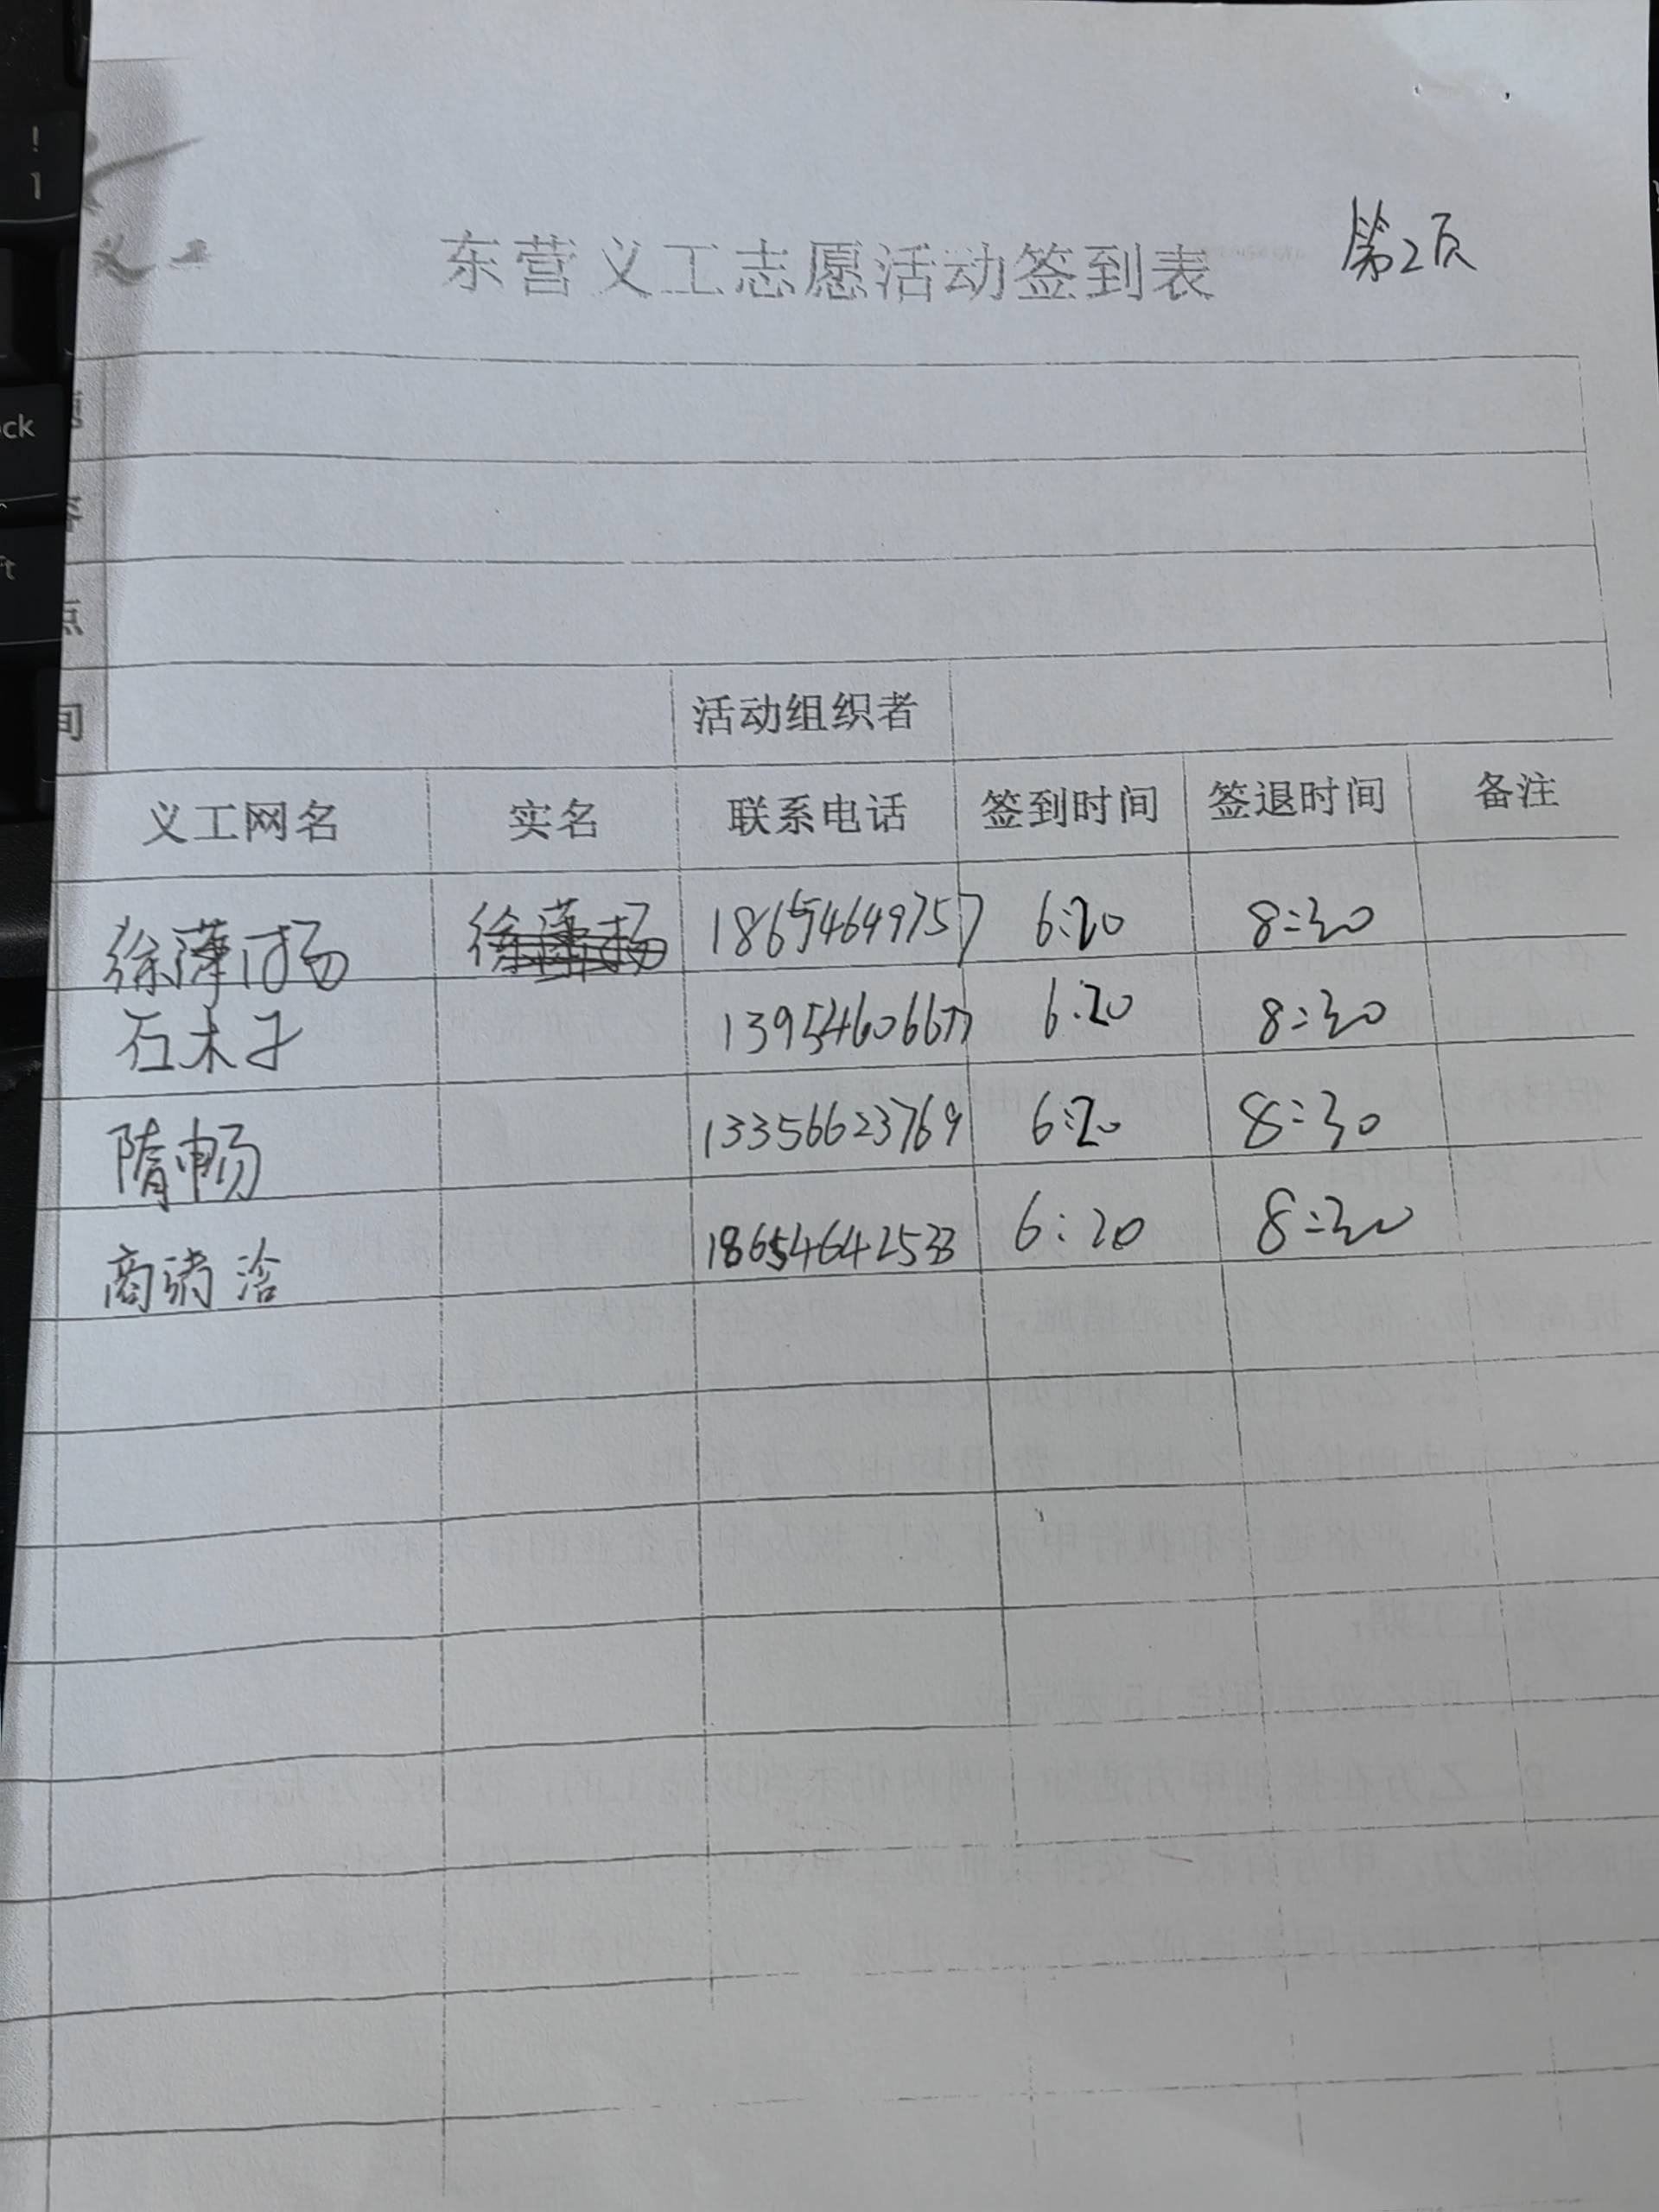 东营义工志愿活动签到表 第2页
点
间 活动组织者
义工网名 实名 联系电话 签到时间 签退时间 备注
徐潇杨 18654649757 6:20 8:30
石木子 13954606677 6:20 8:30
隋畅 13356623769 6:20 8:30
商 18654642533 6:20 8:30